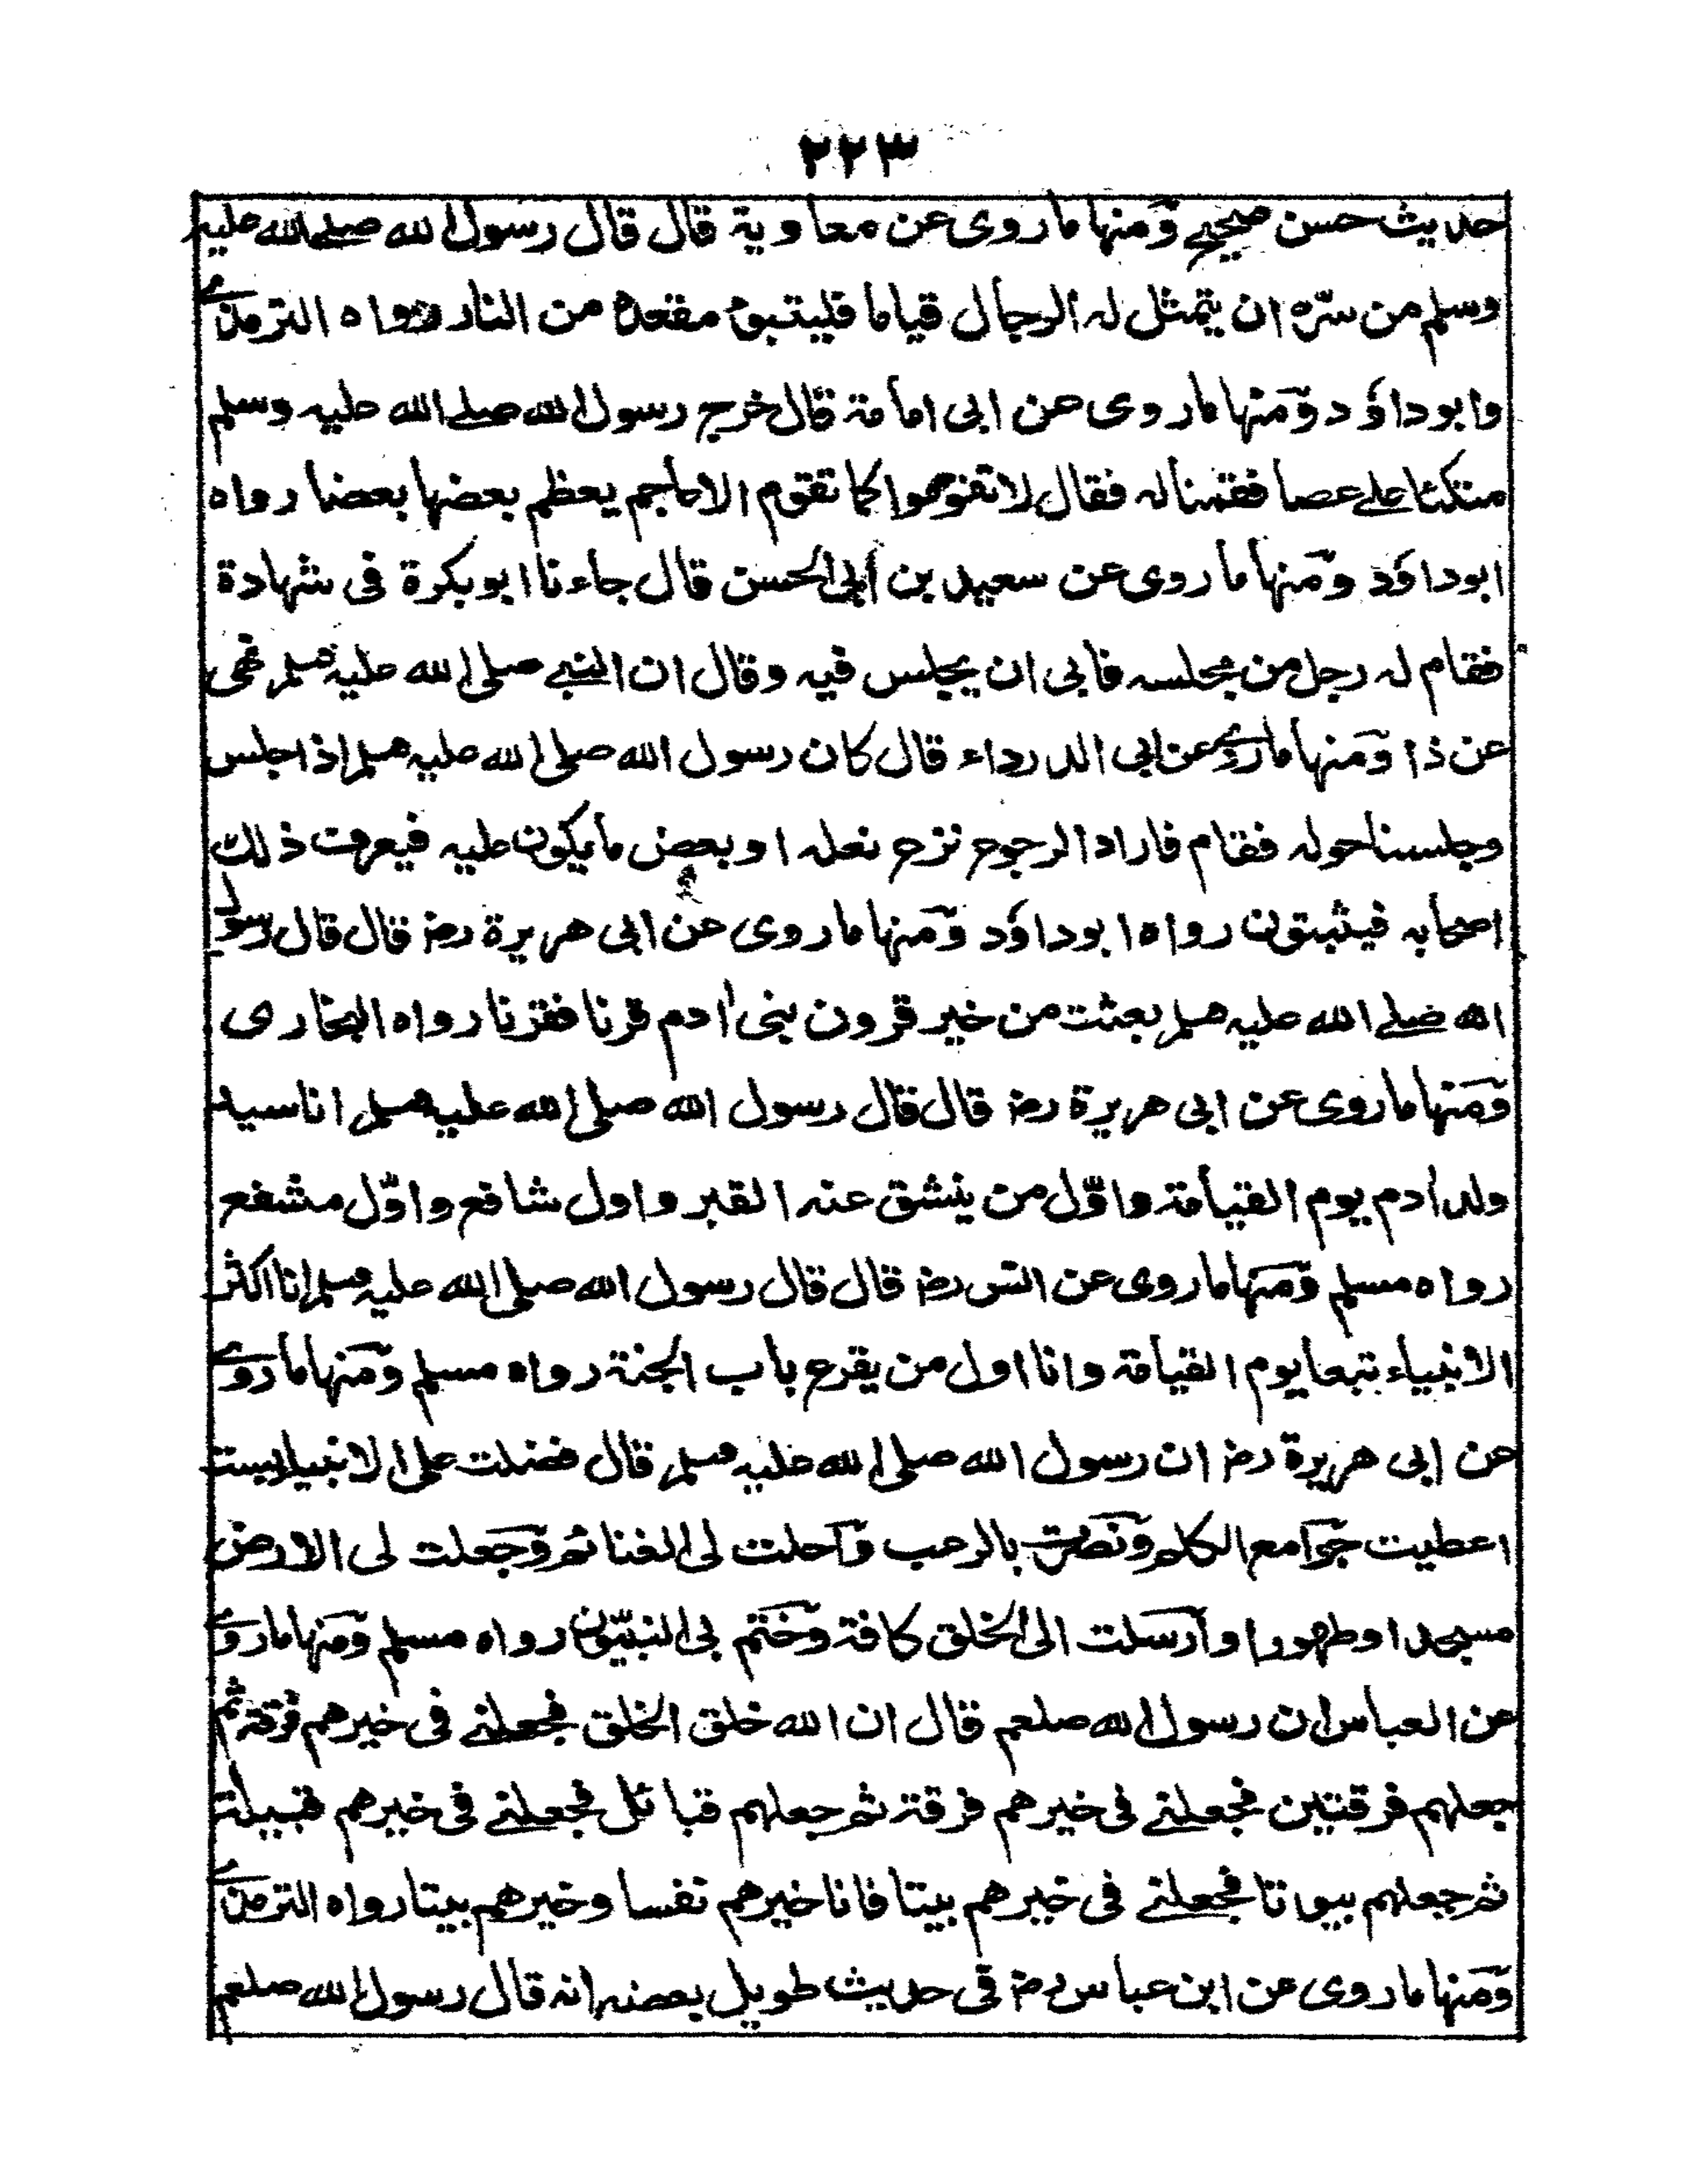 ٢٢٣
حديث حسن صحيح ومنها ما روى عن معاوية قال قال رسول الله صلے الله عليه
وسلم من سرّه ان يتمثل له الرجال قياما فليتبوأ مقعده من النار رواه الترمذے
وابو داؤد ومنها ما روى عن ابى امامة قال خرج رسول الله صلے الله عليه وسلم
متكئا علے عصا فقمنا له فقال لا تقوموا كما تقوم الاعاجم يعظم بعضها بعضا رواه
ابو داؤد ومنها ما روى عن سعيد بن ابى الحسن قال جاءنا ابو بكرة فى شهادة
فقام له رجل من مجلسه فابى ان يجلس فيه وقال ان النبے صلى الله عليه وسلم نهى
عن ذا ومنها ما روے عن ابى الدرداء قال كان رسول الله صلى الله عليه وسلم اذا جلس
وجلسنا حوله فقام فاراد الرجوع نزع نعله او بعض ما يكون عليه فيعرف ذلك
اصحابه فيثبتون رواه ابو داؤد ومنها ما روى عن ابى هريرة رضـ قال قال رسول
الله صلے الله عليه وسلم بعثت من خير قرون بنى ادم قرنا فقرنا رواه البخارى
ومنها ما روى عن ابى هريرة رضـ قال قال رسول الله صلى الله عليه وسلم انا سيد
ولد ادم يوم القيامة واوّل من ينشق عنه القبر واول شافع واوّل مشفع
رواه مسلم ومنها ما روى عن انس رضـ قال قال رسول الله صلى الله عليه وسلم انا اكثر
الانبياء تبعا يوم القيامة وانا اول من يقرع باب الجنة رواه مسلم ومنها ما روے
عن ابى هريرة رضـ ان رسول الله صلى الله عليه وسلم قال فضلت على الانبياء بست
اعطيت جوامع الكلم ونصرت بالرعب واحلت لى الغنائم وجعلت لى الارض
مسجدا وطهورا وارسلت الى الخلق كافة وختم بى النبيّون رواه مسلم ومنها ما روے
عن العباس ان رسول الله صلعم قال ان الله خلق الخلق فجعلنے فى خيرهم فرقة ثم
جعلهم فرقتين فجعلنے فى خيرهم فرقة ثم جعلهم قبائل فجعلنے فى خيرهم قبيلة
ثم جعلهم بيوتا فجعلنے فى خيرهم بيتا فانا خيرهم نفسا وخيرهم بيتا رواه الترمذے
ومنها ما روى عن ابن عباس رضـ فى حديث طويل بعضه انه قال رسول الله صلعم